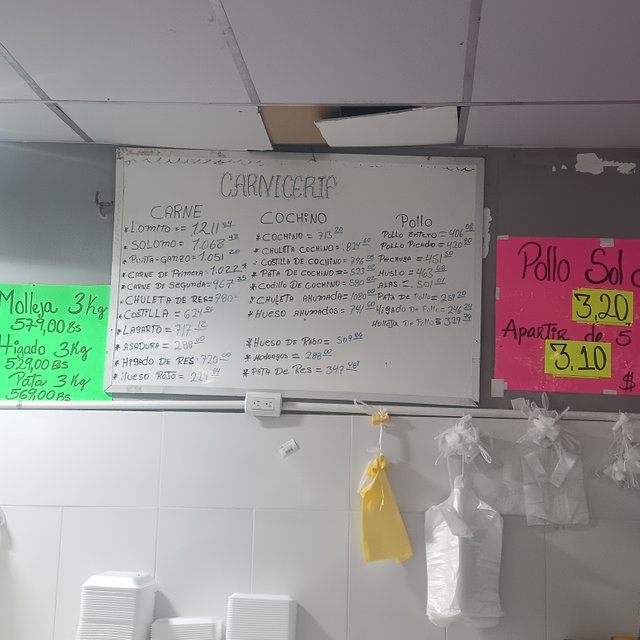 CARNICERIF
CARNE
* LOMITO = 1211
* SOLOMO = 1.068
* PUNTA-GANZO = 1.051 20
* CARNE DE PRIMERA = 1.022
* CARNE DE SEGUNDA = 967 35
* CHULETA DE RES = 780
* COSTILLA = 624
* LAGARTO = 717
* ASADURA = 288 00
* HIGADO DE RES = 720 00
* HUESO ROJO =
COCHINO
* COCHINO = 713 20
* CHULETA COCHINO = 824 60
* COSTILLA DE COCHINO = 796
* PATA DE COCHINO = 523
* CODILLO DE COCHINO = 580
* CHULETA AHUMADA = 1080 00
* HUESO AHUMADOS = 741 60
* HUESO DE RABO = 509
* MONDONGOS = 288 00
* PATA DE RES = 347
Pollo
POLLO ENTERO = 406
POLLO PICADO = 420
PECHUGA = 451
MUSLO = 463
ALAS = 501 01
PATA DE POLLO = 259 20
HIGADO DE POLLO = 246 24
MOLLEJA DE POLLO = 329
Molleja 3 Kg
579,00 Bs
Higado 3Kg
529,00 Bs
Pata 3 Kg
569,00 Bs
Pollo Sol
3,20
Apartir de 5
3,10
$